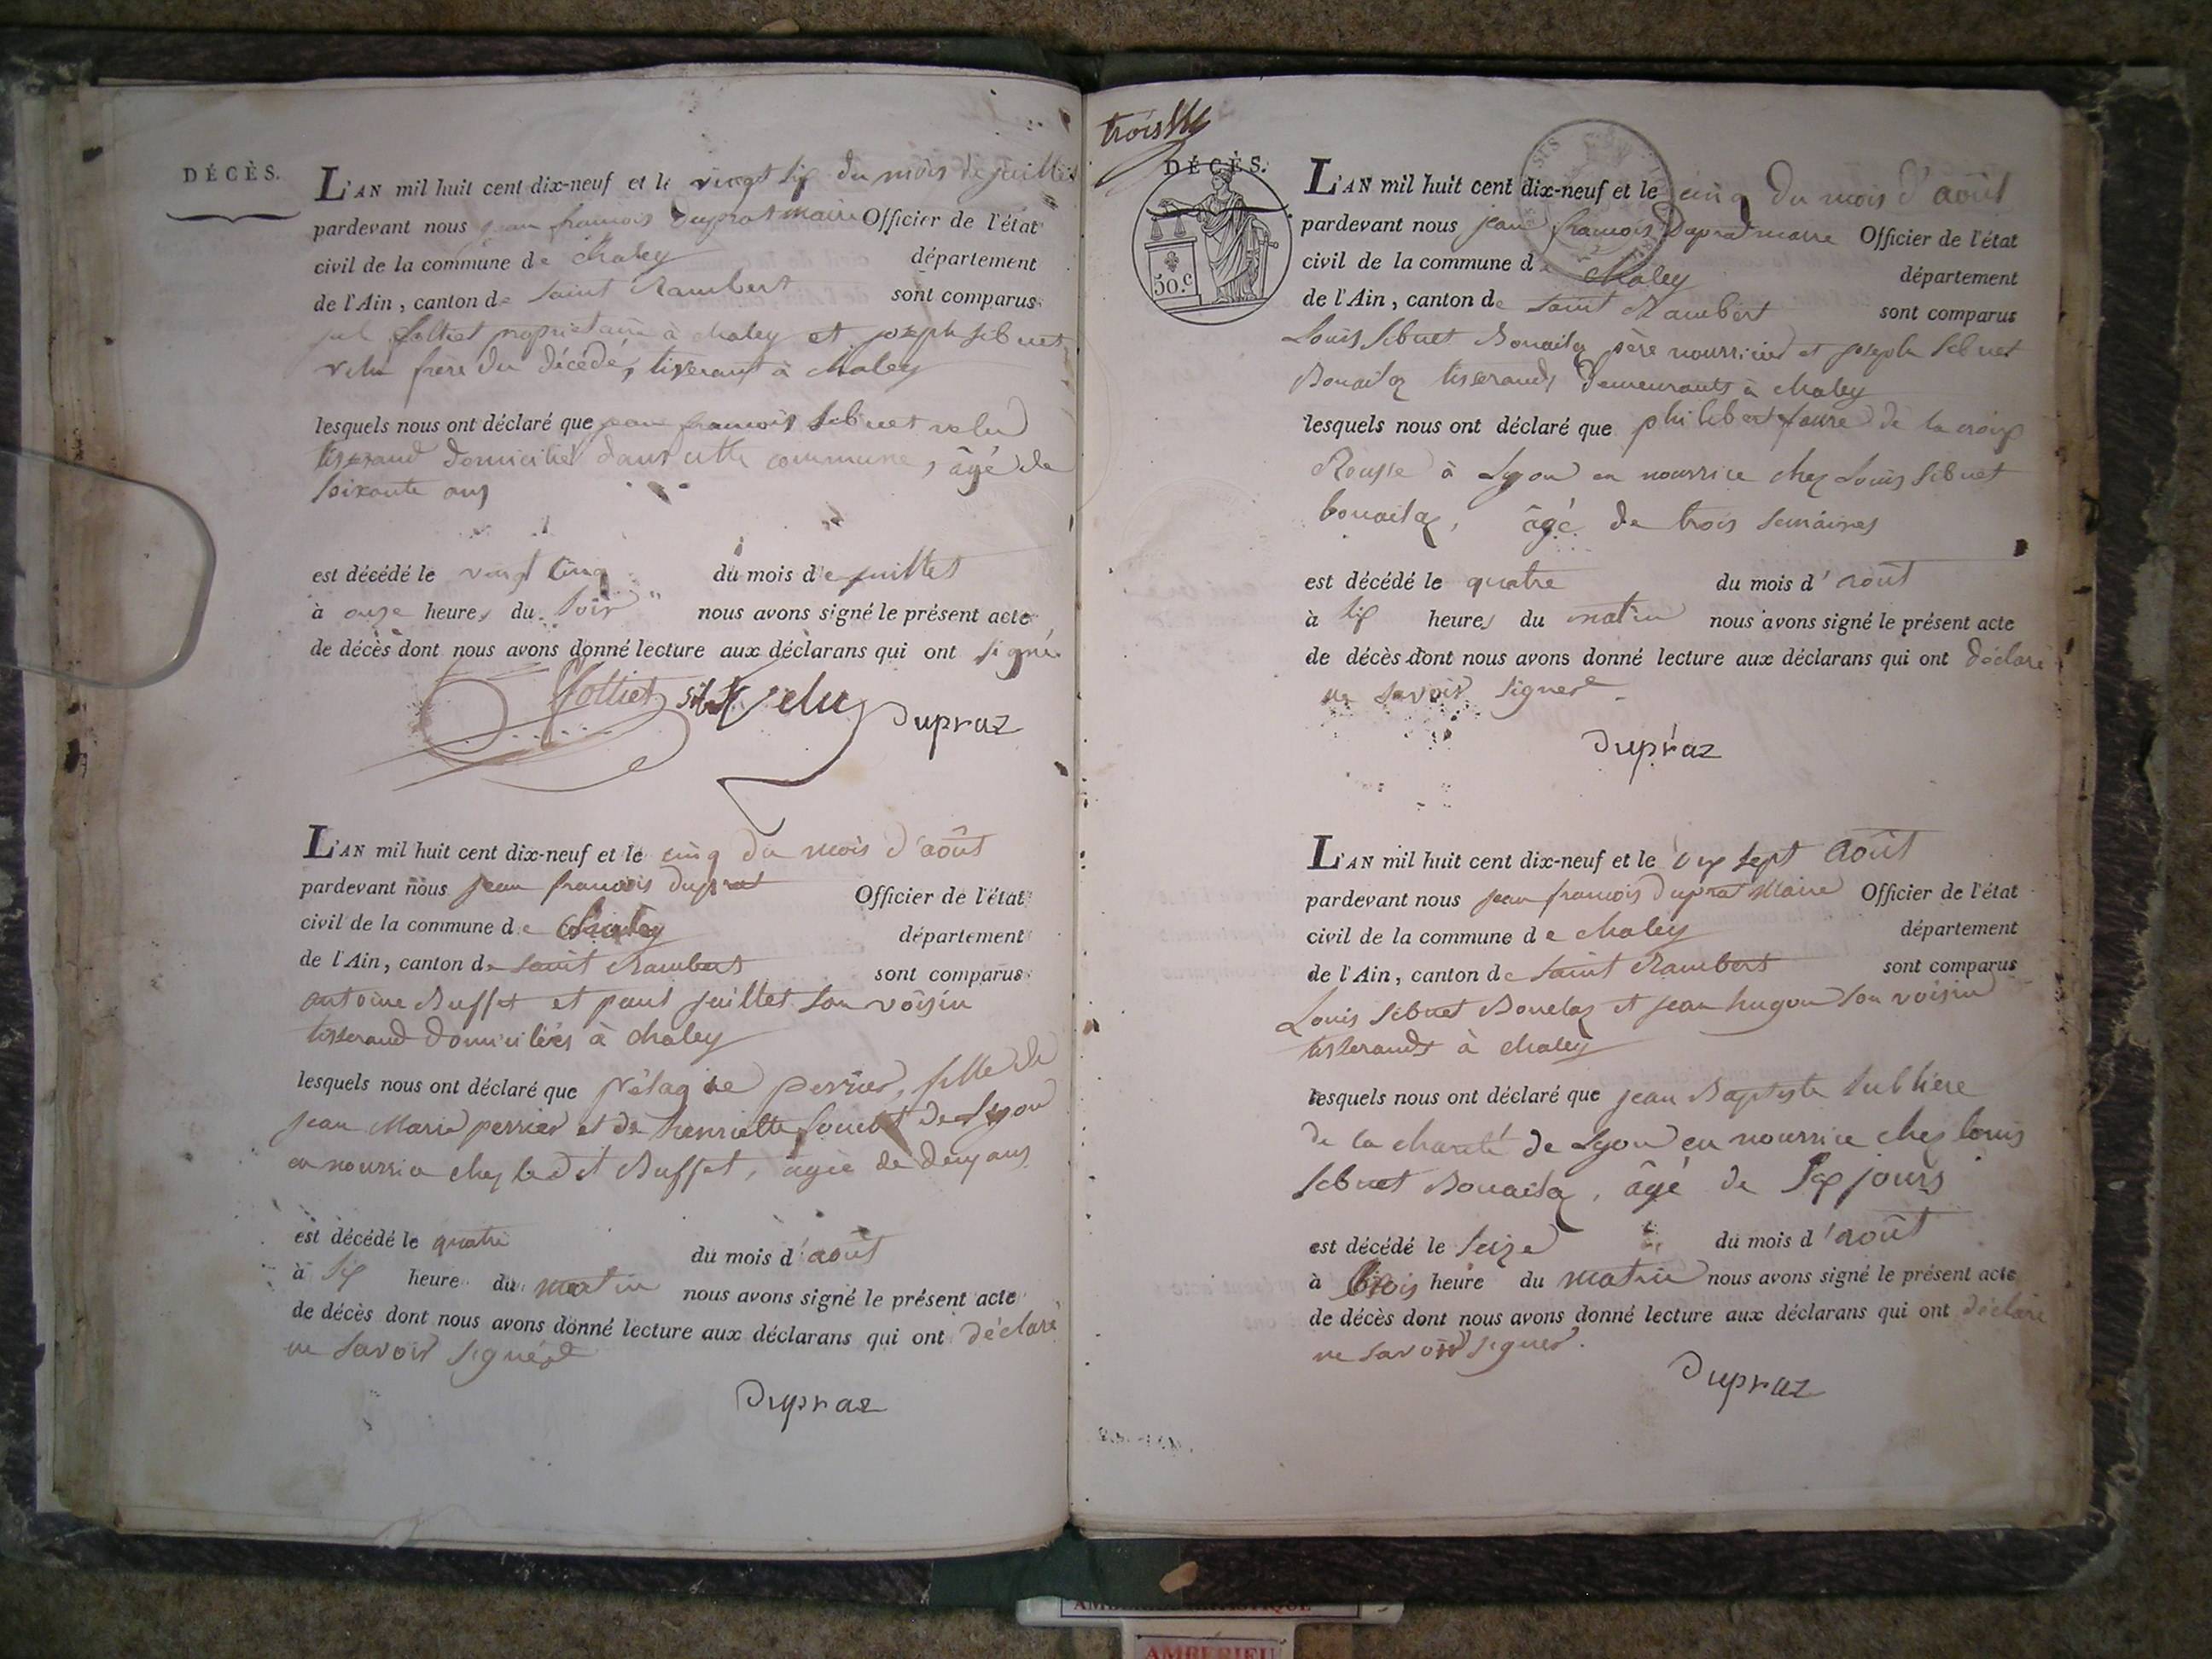 DÉCÈS.
L'AN mil huit cent dix-neuf et le vingt six du mois de juillet
pardevant nous jean francois Duprat maire Officier de l'état
civil de la commune de chaley département
de l'Ain, canton de Saint Rambert sont comparus
folliet proprietaire à chaley et joseph Sibuet
velu frère du décédé, tisserant à chaley
lesquels nous ont déclaré que jean francois Sibuet velu
tisserand domicilié dans cette commune, âgé de
soixante ans
est décédé le vingt cinq du mois de juillet
à onze heures du soir nous avons signé le présent acte
de décès dont nous avons donné lecture aux déclarans qui ont signé
folliet sibt Velu Dupraz
L'AN mil huit cent dix-neuf et le cinq du mois d'août
pardevant nous jean francois duprat Officier de l'état
civil de la commune de chaley département
de l'Ain, canton de saint Rambert sont comparus
antoine Buffet et paul juillet son voisin
tisserand domiciliés à chaley
lesquels nous ont déclaré que pelagie perrier, fille de
jean Marie perrier et de henriette de Lyon
en nourrice chez le dt Buffet, âgée de deux ans
est décédé le quatre du mois d'août
à six heure du matin nous avons signé le présent acte
de décès dont nous avons donné lecture aux déclarans qui ont déclaré
ne savoir signer
Dupraz
trois
DÉCÈS.
50.c
L'AN mil huit cent dix-neuf et le cinq du mois d'août
pardevant nous jean francois Duprat maire Officier de l'état
civil de la commune de chaley département
de l'Ain, canton de saint Rambert sont comparus
Louis Sibuet Bonailaz père nourricier et joseph Sibuet
Bonailaz tisserands demeurants à chaley
lesquels nous ont déclaré que philibert faure de la croix
Rousse à Lyon en nourrice chez Louis Sibuet
bonailaz, âgé de trois semaines
est décédé le quatre du mois d'août
à six heures du matin nous avons signé le présent acte
de décès dont nous avons donné lecture aux déclarans qui ont déclaré
ne savoir signer
Dupraz
L'AN mil huit cent dix-neuf et le dix sept août
pardevant nous jean francois duprat Maire Officier de l'état
civil de la commune de chaley département
de l'Ain, canton de saint Rambert sont comparus
Louis Sibuet Bonelaz et jean hugon son voisin
tisserands à chaley
lesquels nous ont déclaré que jean Baptiste Sublière
de la charité de Lyon en nourrice chez louis
Sibuet Bonailaz, âgé de six jours
est décédé le seize du mois d'août
à trois heure du matin nous avons signé le présent acte
de décès dont nous avons donné lecture aux déclarans qui ont déclaré
ne savoir signer.
Dupraz
AMBERIEU